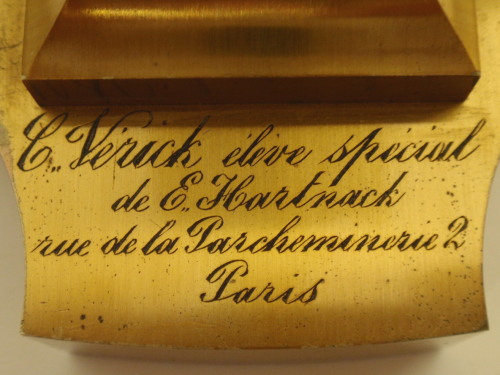 C. Vérick élève spécial
de E. Hartnack
rue de la Parcheminerie 2
Paris